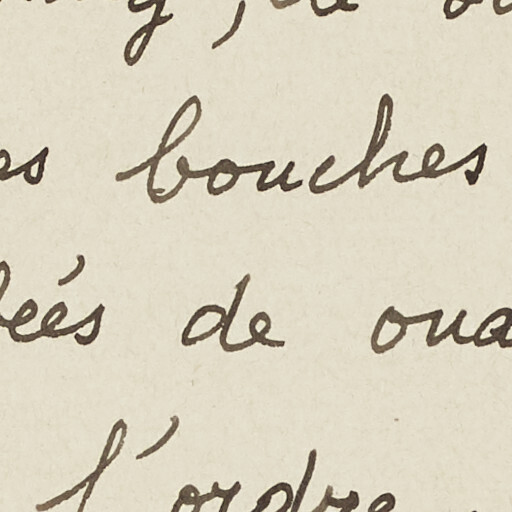 es bouches
ées de oua
l'ordre